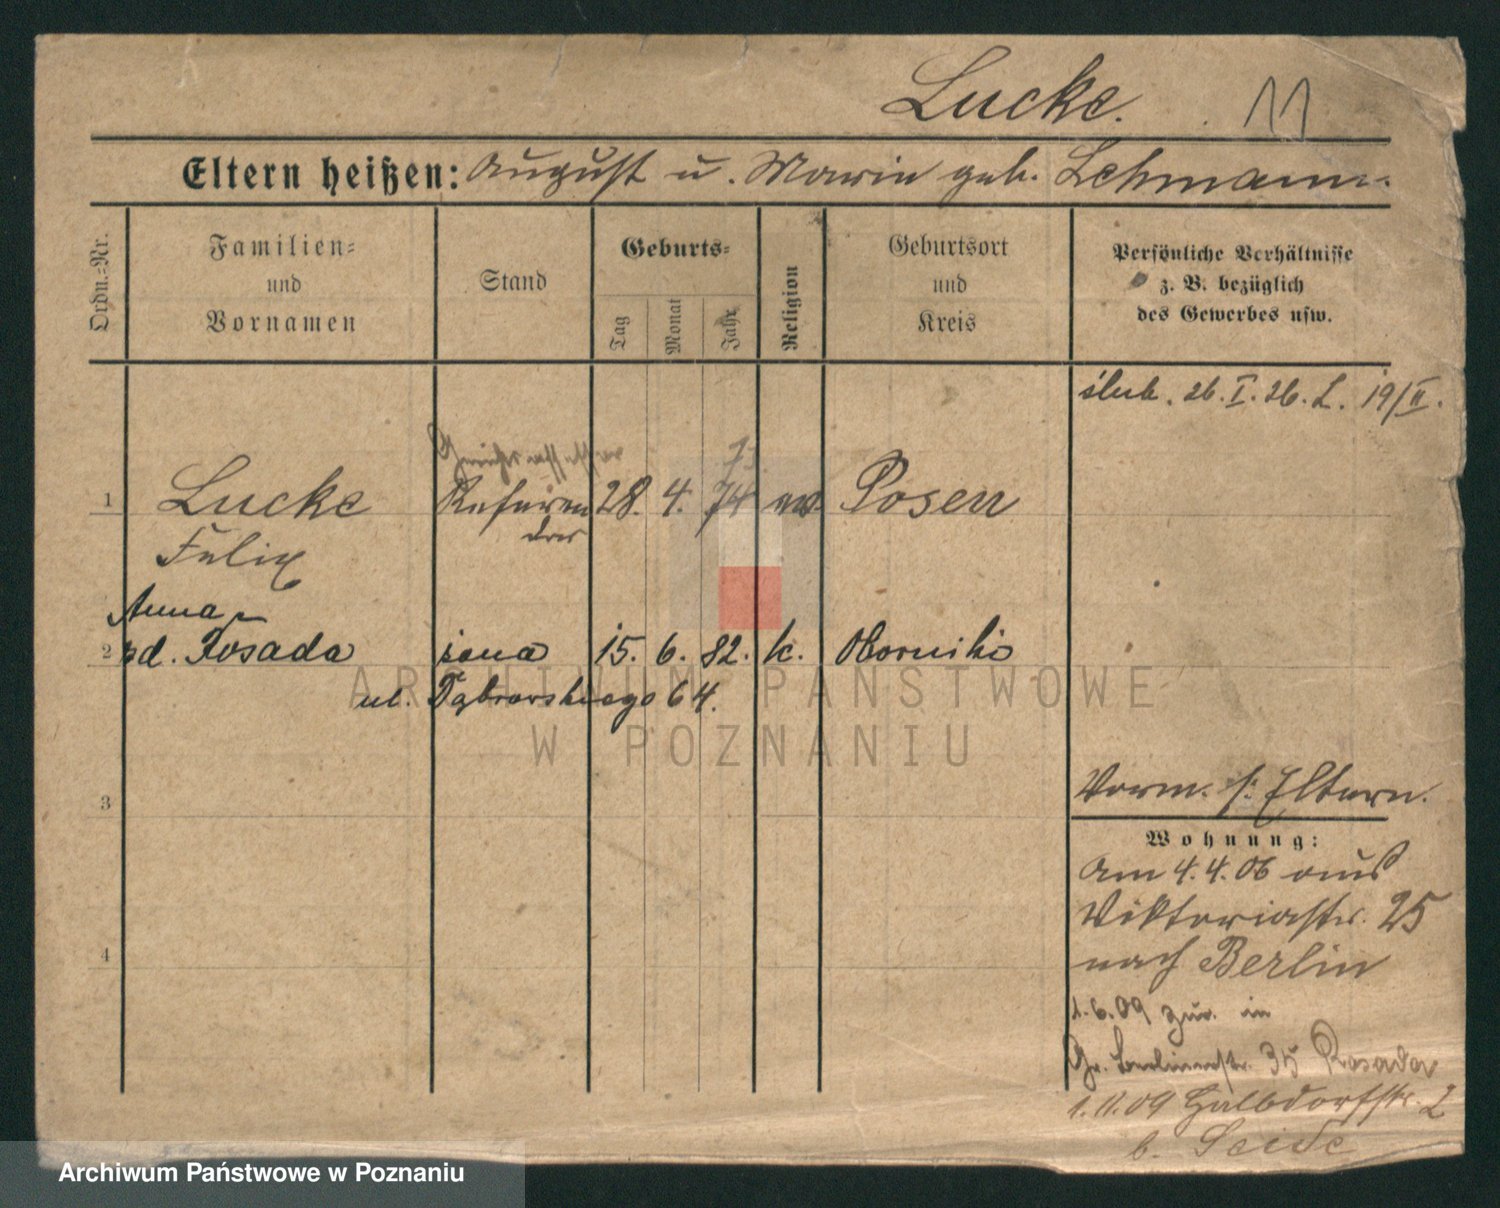 Lucke. 11
Eltern heißen: August u. Marie geb. Lehmann.
Ordn.-Nr.
Familien-
und
Vornamen
Stand
Geburts-
Tag
Monat
Jahr
Religion
Geburtsort
und
Kreis
Persönliche Verhältnisse
z. B. bezüglich
des Gewerbes usw.
ślub. 26. I. 26. L. 19/II.
1 Lucke Referen 28. 4. 74 ev Posen
Felix dar
Anna
2 Posada żona 15. 6. 82. k. Oborniki
ul. Dąbrowskiego 64.
3
4
Vorm. s. Eltern.
Wohnung:
Am 4.4.06 aus
Viktoriastr. 25
nach Berlin
1.6.09 zur. in
Gr. Berlinerstr. 35 Posada
1.11.09 Halbdorfstr. 2
b. Seide
ARCHIWUM PAŃSTWOWE
W POZNANIU
Archiwum Państwowe w Poznaniu